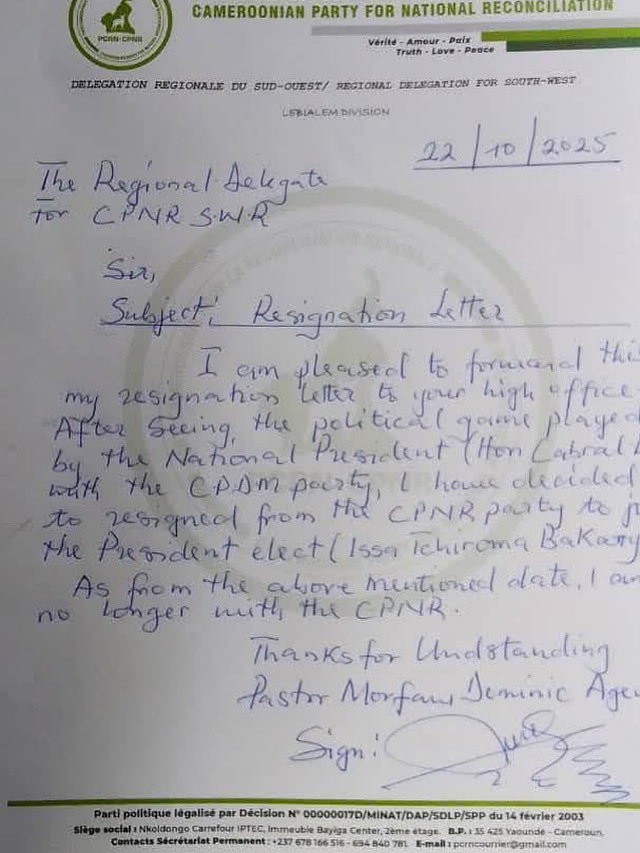 PCRN-CPNR
CAMEROONIAN PARTY FOR NATIONAL RECONCILIATION
Vérité - Amour - Paix
Truth - Love - Peace
DELEGATION REGIONALE DU SUD-OUEST/ REGIONAL DELEGATION FOR SOUTH-WEST
LEBIALEM DIVISION
22/10/2025
The Regional Delegate
for CPNR S.W.R
Sir,
Subject: Resignation Letter
I am pleased to forward this
my resignation letter to your high office
After Seeing, the political game played
by the National President (Hon Cabral
with the CPDM party, I have decided
to resigned from the CPNR party to
the President elect (Issa Tchiroma Bakary
As from the above mentioned date, I am
no longer with the CPNR.
Thanks for Undstanding
Pastor Morfaw Dominic
Sign:
Parti politique légalisé par Décision N° 00000017D/MINAT/DAP/SDLP/SPP du 14 février 2003
Siège social : Nkoldongo Carrefour IPTEC, Immeuble Bayiga Center, 2ème étage. B.P. : 35 425 Yaoundé - Cameroun,
Contacts Sécrétariat Permanent : +237 678 166 516 - 694 840 781 E-mail : pcrncourrier@gmail.com